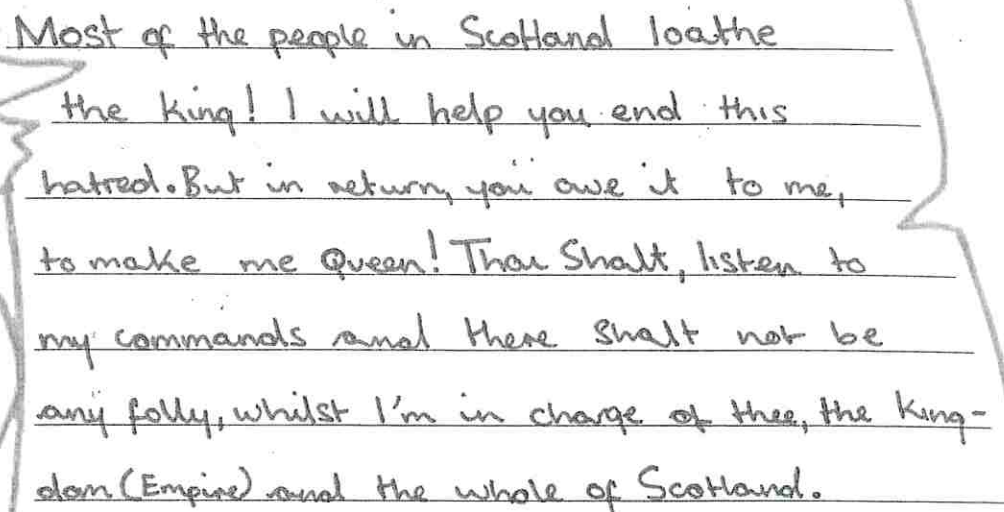 Most of the people in Scotland loathe
the king! I will help you end this
hatred. But in return, you owe it to me,
to make me Queen! Thou Shalt, listen to
my commands and there shalt not be
any folly, whilst I'm in charge of thee, the King-
dom (Empire) and the whole of Scotland.